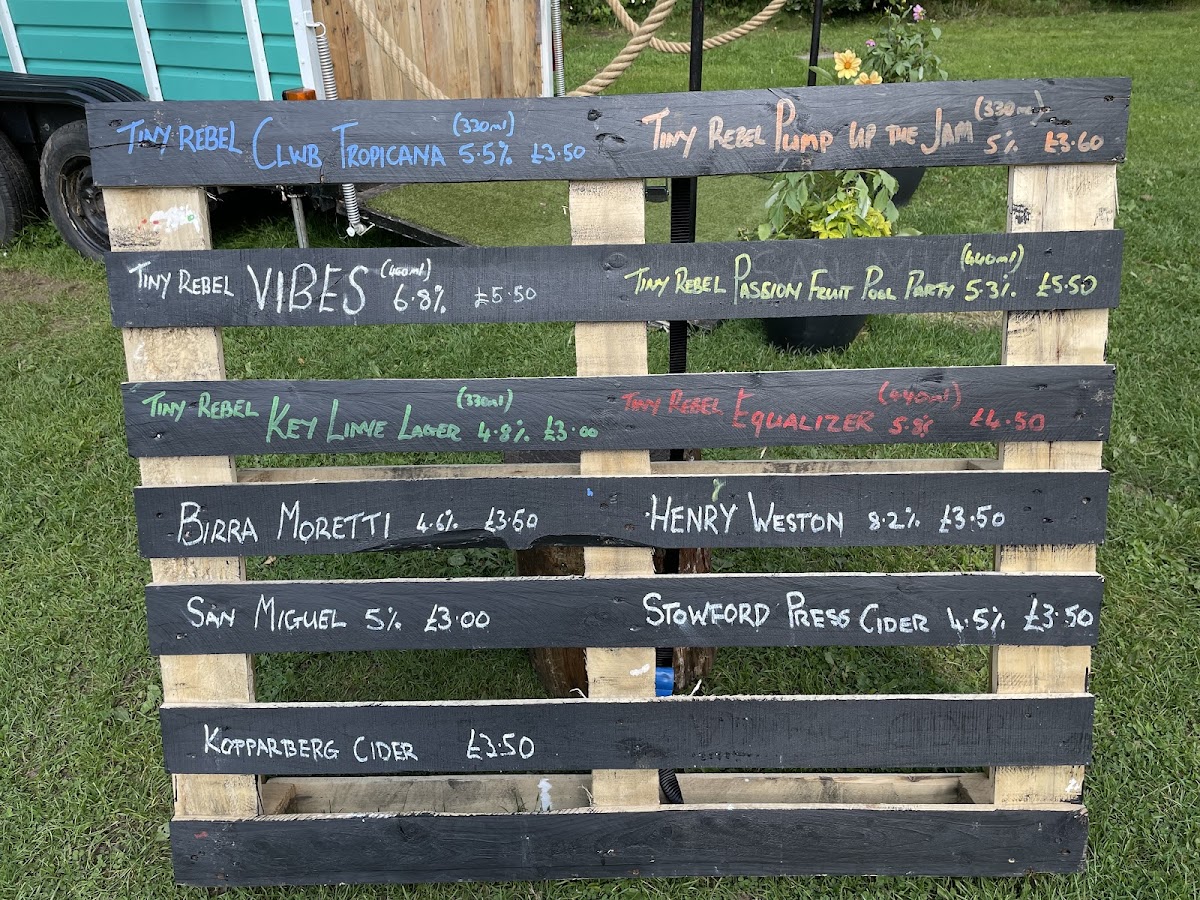 TINY REBEL CLWB TROPICANA (330ml) 5.5% £3.50
TINY REBEL PUMP UP THE JAM (330ml) 5% £3.60
TINY REBEL VIBES (440ml) 6.8% £5.50
TINY REBEL PASSION FRUIT POOL PARTY (440ml) 5.3% £5.50
TINY REBEL KEY LIME LAGER (330ml) 4.8% £3.00
TINY REBEL EQUALIZER (440ml) 5.8% £4.50
BIRRA MORETTI 4.6% £3.50
HENRY WESTON 8.2% £3.50
SAN MIGUEL 5% £3.00
STOWFORD PRESS CIDER 4.5% £3.50
KOPPARBERG CIDER £3.50